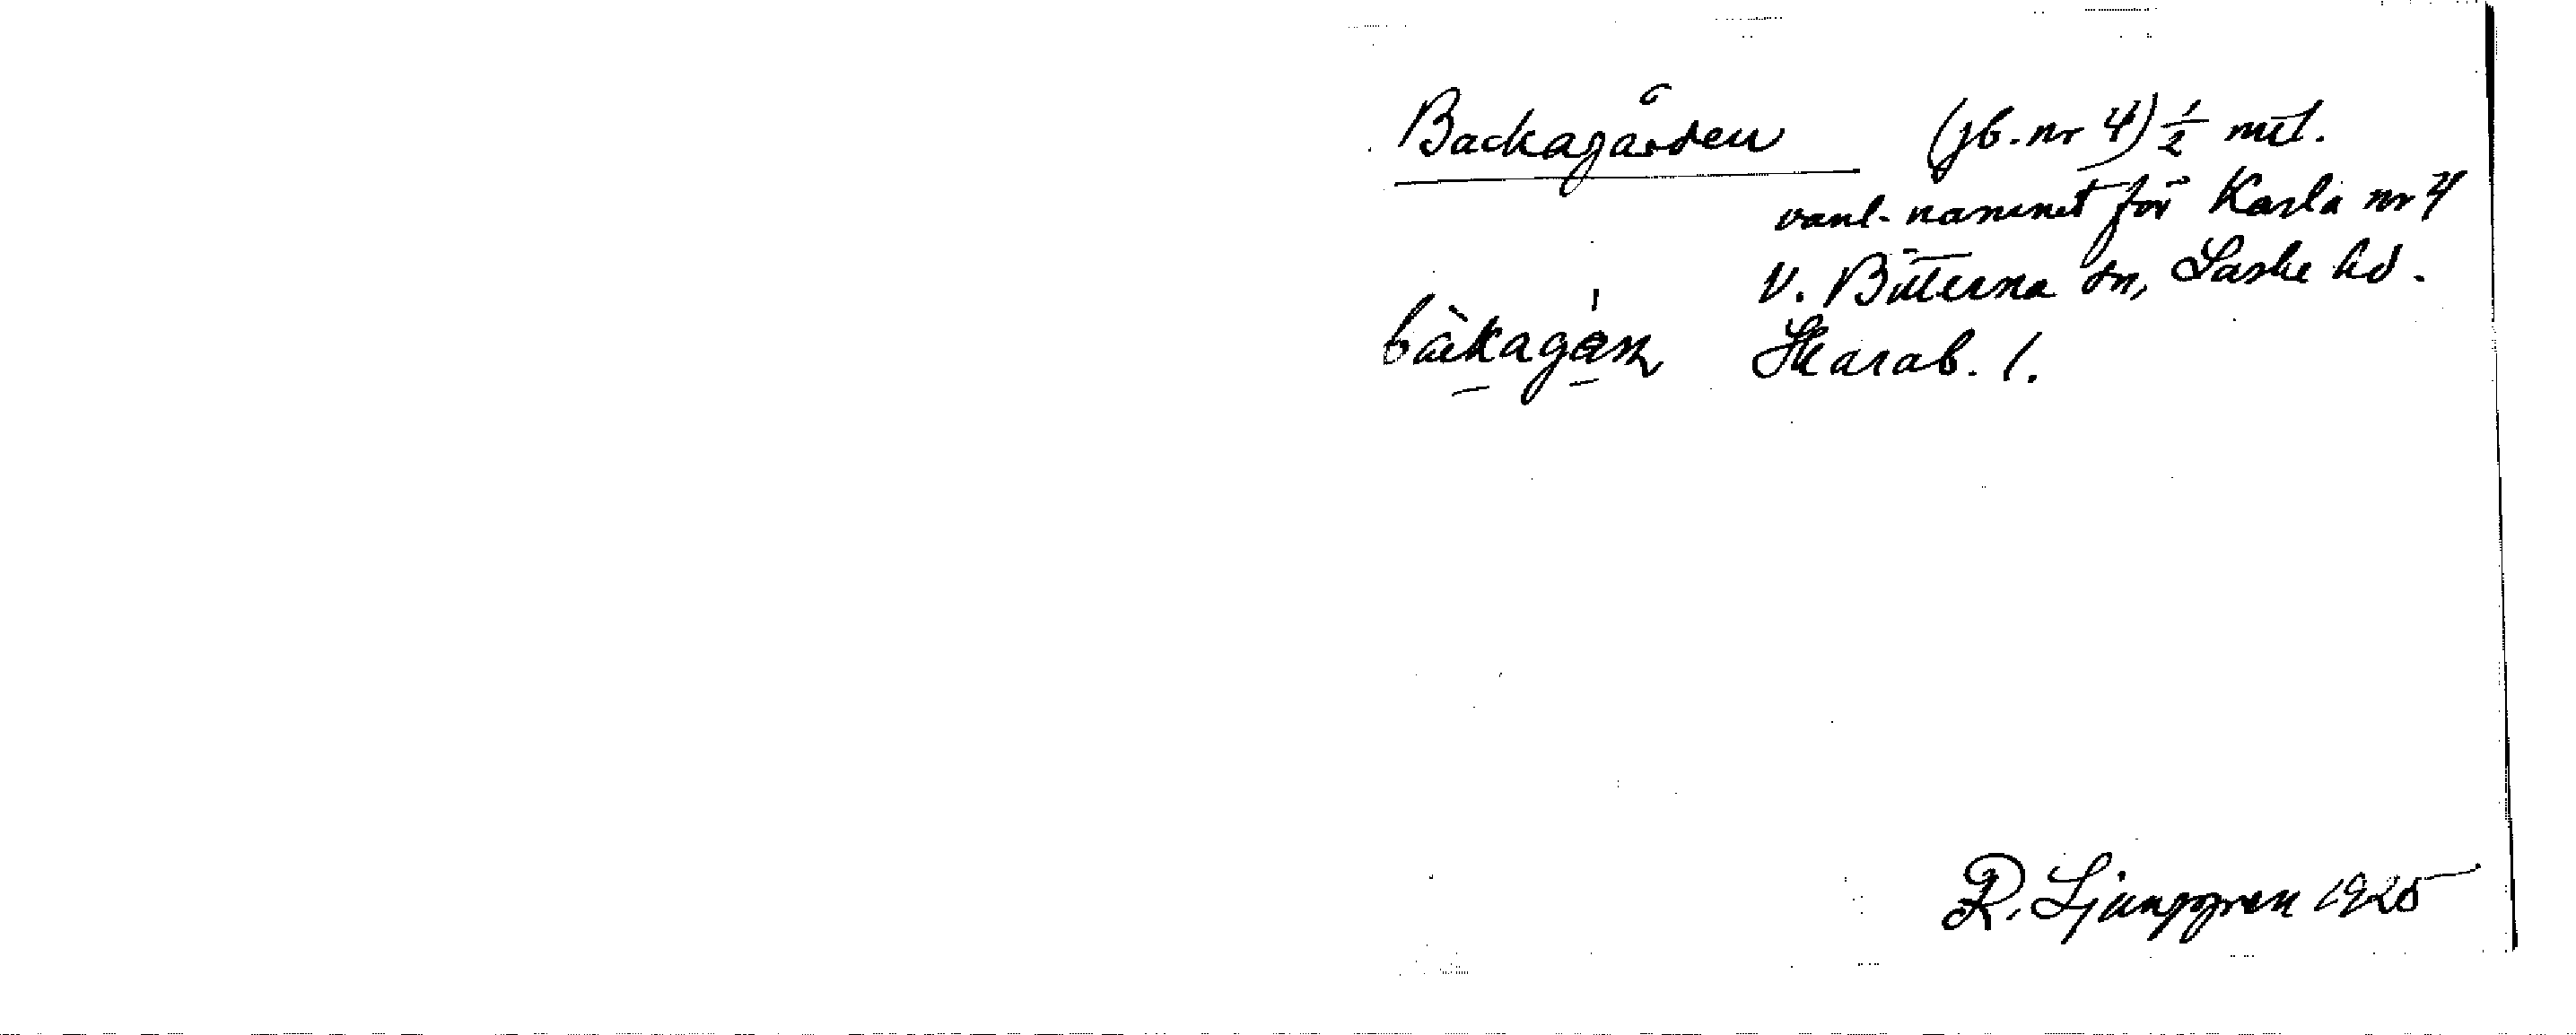 Backagården (jb. nr 4) ½ mtl.
vanl. namnet för Karla nr 4
V. Bitterna sn, Laske hd.
bàkagàṣṇ Skarab. l.
R. Ljunggren 1925